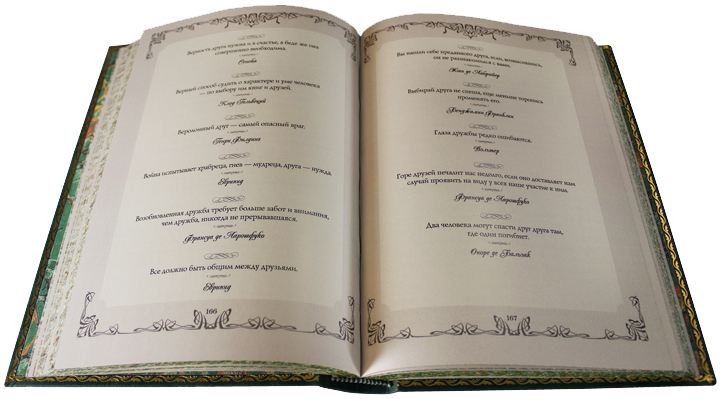 Верность друга нужна и в счастье, в беде же она
совершенно необходима.
Сенека
Верный способ судить о характере и уме человека
— по выбору им книг и друзей.
Клод Гельвеций
Вероломный друг — самый опасный враг.
Генри Филдинг
Война испытывает храбреца, гнев — мудреца, друга — нужда.
Еврипид
Возобновленная дружба требует больше забот и внимания,
чем дружба, никогда не прерывавшаяся.
Франсуа де Ларошфуко
Все должно быть общим между друзьями.
Еврипид
166
Вы нашли себе преданного друга, если, возвысившись,
он не раззнакомился с вами.
Жан де Лабрюйер
Выбирай друга не спеша, еще меньше торопись
променять его.
Бенджамин Франклин
Глаза дружбы редко ошибаются.
Вольтер
Горе друзей печалит нас недолго, если оно доставляет нам
случай проявить на виду у всех наше участие к ним.
Франсуа де Ларошфуко
Два человека могут спасти друг друга там,
где один погибнет.
Оноре де Бальзак
167